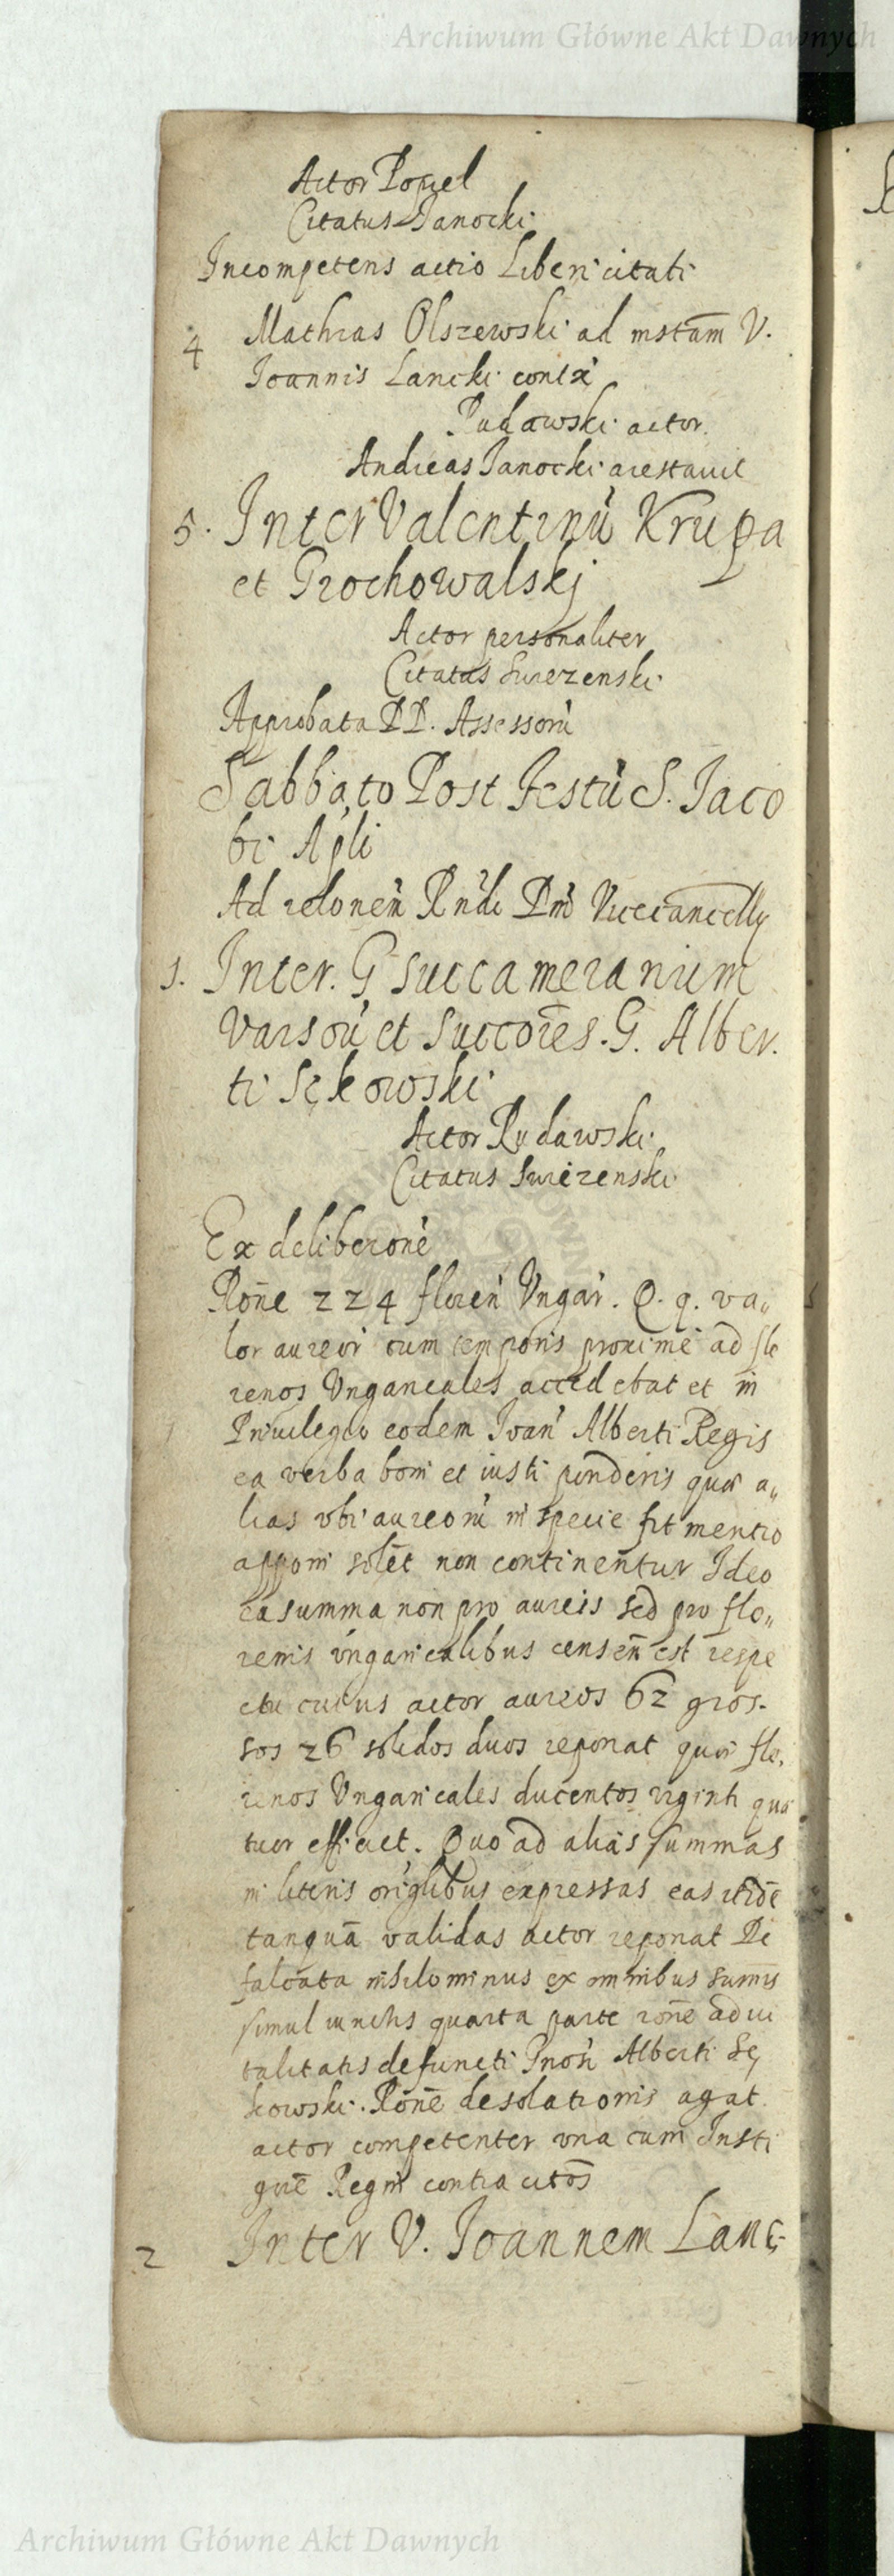 Archiwum Główne Akt Dawnych
Actor Popiel
Citatus Janocki
Incompetens actio Liberi citati
4 Mathias Olszewski ad instām V.
Joannis Lancki contr̃
Rudawski actor.
Andreas Janocki arestavit
5. Inter Valentinũ Krupa
et Grochowalskj
Actor personaliter
Citatus Swiezenski
Approbata DD. Assessorũ
Sabbato Post Festũ S. Jaco
bi Apli
Ad relonem̃ Rndi Dni Vicecancelly
1. Inter. G Succamerarium
Varsou̇ et Succor̄es. G. Alber.
ti Sękowski
Actor Rudawski
Citatus Swiezenski
Ex deliberonẽ
Rōne 224 floren̓ Ungar̓. Q. q. va„
lor aureor̃ cum temporis proxime ad flo
renos Ungaricales accedebat et in
Priuilegio eodem Joan̓ Alberti Regis
ea verba boni et iusti ponderis quæ a„
lias ubi aureorũ in specie fit mentio
apponi solēt non continentur Ideo
ea summa non pro aureis sed pro flo„
renis ungaricalibus censen̄ est respe
ctu cuius actor aureos 62 gros-
sos 26 solidos duos reponat qui flo,
renos Ungaricales ducentos viginti qua
tuor efficiet. Quo ad alias summas
in literis orīglibus expressas eas itidē
tanquā validas actor reponat De
falcata nihilominus ex omnibus sumis
simul iunctis quarta parte rōne advi
talitatis defuncti Gnosi Alberti Sę
kowski. Rōnē desolationis agat
actor competenter una cum Insti
gorē Regni contra citōs
2 Inter V. Joannem Lanc-
Archiwum Główne Akt Dawnych